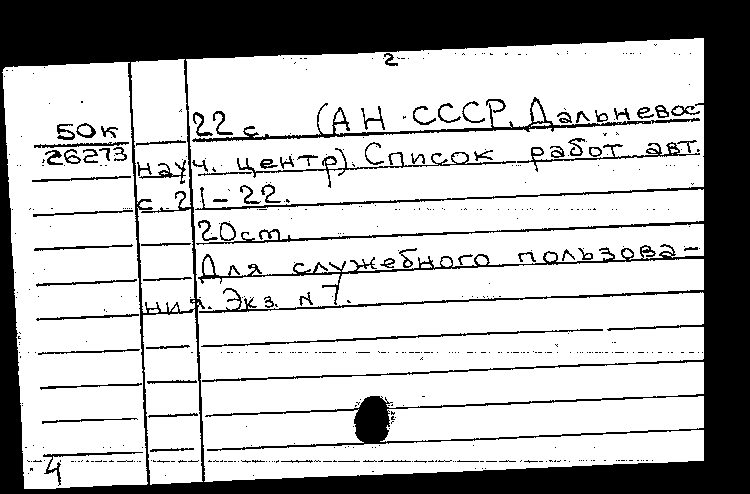 2
50к
26273
22 с. (АН СССР. Дальневос-
науч. центр). Список работ авт.
с. 21-22.
20 cm.
Для служебного пользова-
ния. Экз. N 7.
4